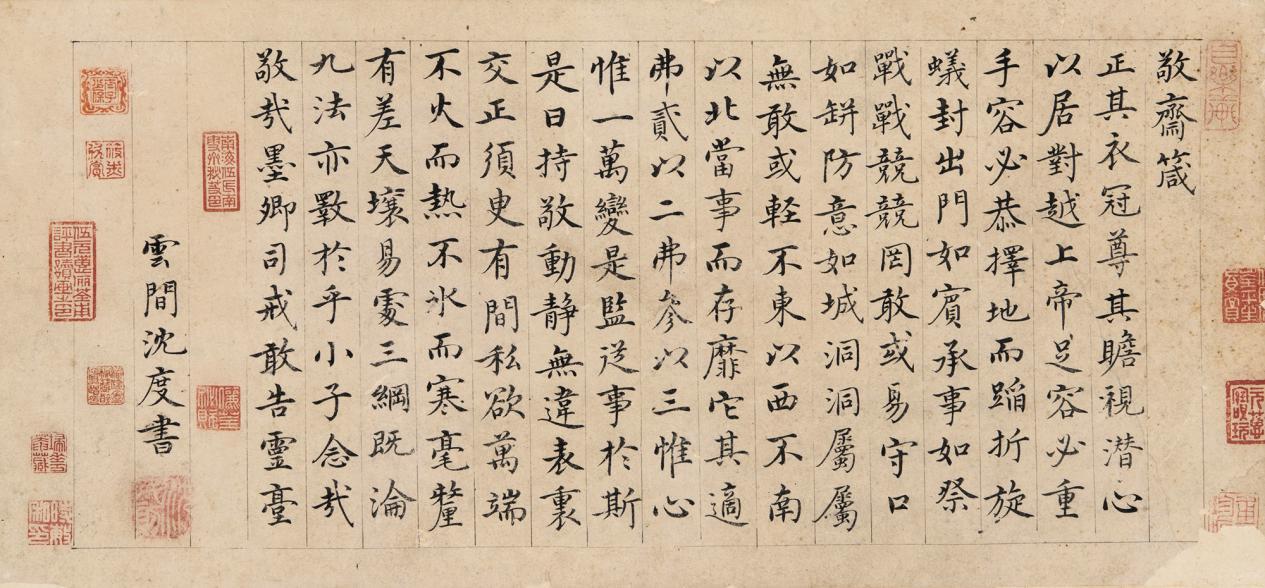 敬齋箴
正其衣冠尊其瞻視潜心
以居對越上帝足容必重
手容必恭擇地而蹈折旋
蟻封出門如賓承事如祭
戰戰競競罔敢或易守口
如缾防意如城洞洞屬屬
無敢或軽不東以西不南
以北當事而存靡它其適
弗貳以二弗參以三惟心
惟一萬變是監從事於斯
是曰持敬動静無違表裏
交正須臾有間私欲萬端
不火而熱不氷而寒毫釐
有差天壤易處三綱既淪
九法亦斁於乎小子念哉
敬哉墨卿司戒敢告靈臺
雲間沈度書